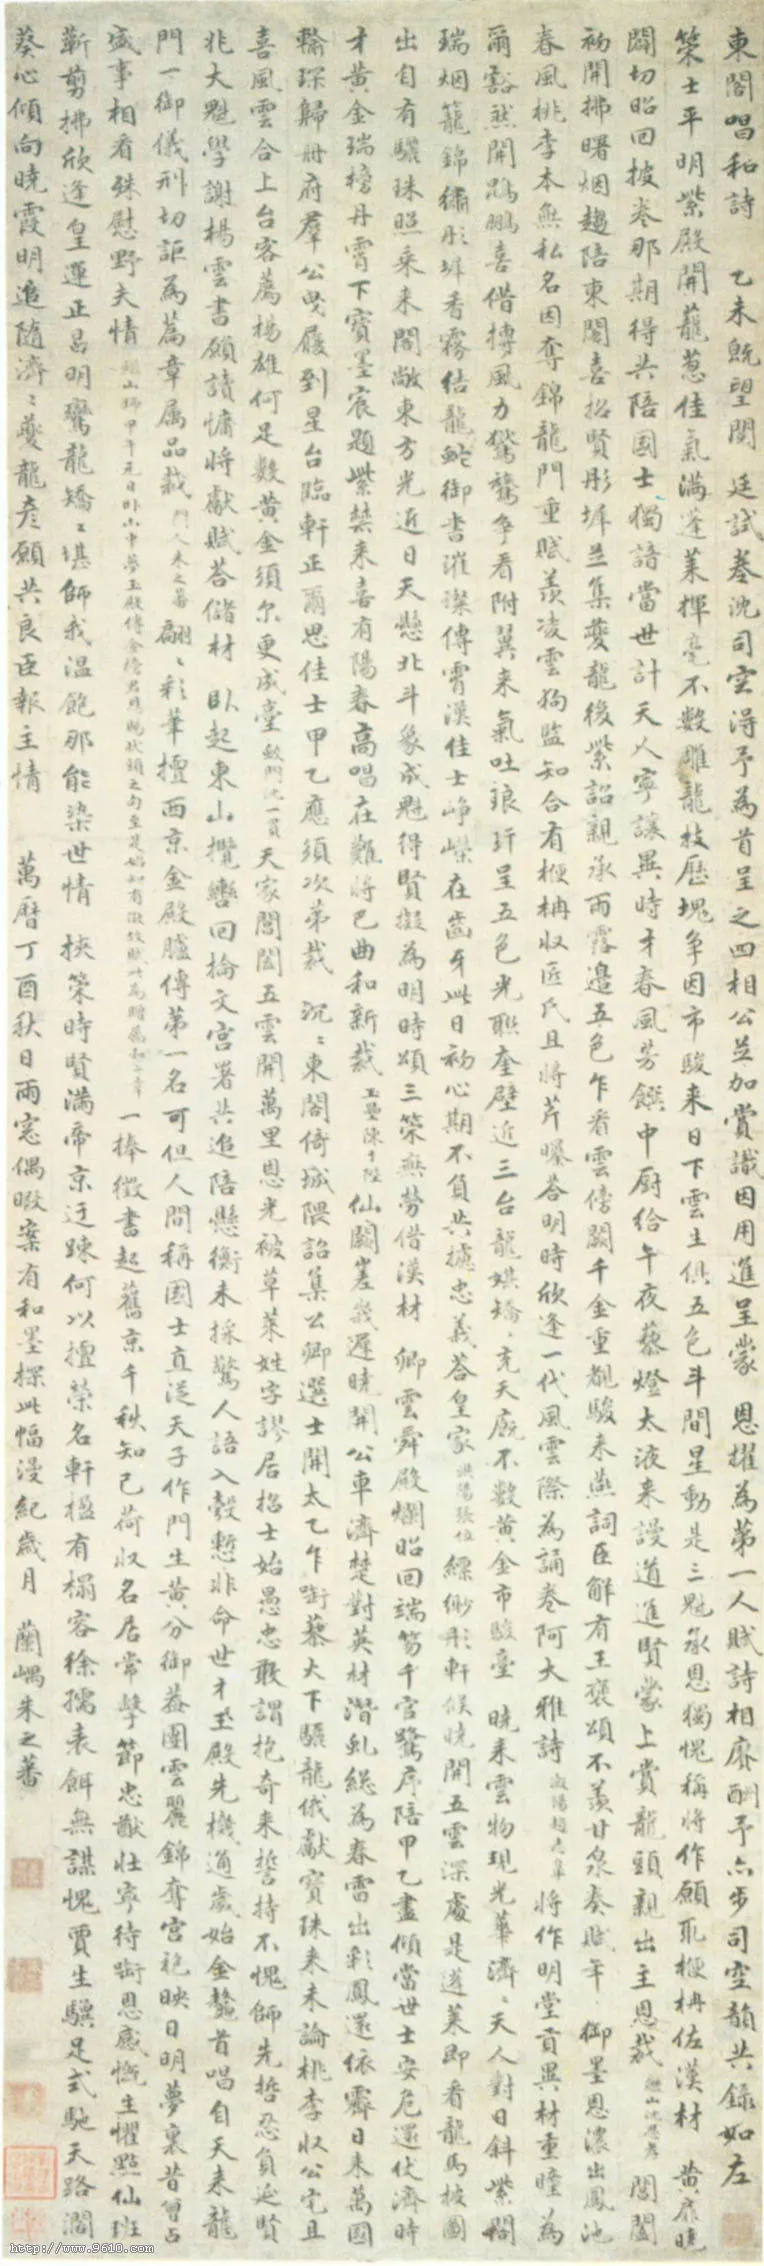 東閣唱和詩 乙未既望閱 廷試卷沈司空得予為首呈之四相公並加賞識因用進呈蒙 恩擢為第一人賦詩相賡酬予亦步司空韻共錄如左
策士平明紫殿開蘢蔥佳氣滿蓬萊揮毫不數雕龍技歷塊爭因市駿來日下雲生俱五色斗間星動是三魁承恩獨愧稱將作願取楩柟佐漢材 黃扉曉
闢切昭回披卷那期得共陪國士獨諳當世計天人寧讓異時才春風芳饌中厨給午夜藜燈太液來謾道進賢蒙上賞龍頭親出主恩裁 閶闔
初開拂曙烟趨陪東閣喜招賢彤墀並集夔龍後紫詔親承雨露邊五色乍看雲傍闕千金重覩駿來燕詞臣解有王褒頌不羨甘泉奏賦年 御墨恩濃出鳳池
春風桃李本無私名因奪錦龍門重賦羨凌雲狗監知合有楩柟收匠氏且將芹曝答明時欣逢一代風雲際為誦卷阿大雅詩 將作明堂貢異材重瞳為
爾豁然開鵾鵬喜借摶風力鸞鶩爭看附翼來氣吐琅玕呈五色光聯奎壁近三台龍媒矯矯充天廐不數黃金市駿臺 曉來雲物現光華濟濟天人對日斜紫閣
瑞烟籠錦繡彤墀香霧結龍蛇御書漼璨傳霄漢佳士崢嶸在齒牙此日初心期不負共攄忠義答皇家 洪陽張位 縹緲彤軒候曉開五雲深處是蓬萊即看龍馬披圖
出自有驪珠照乘來閣敞東方光近日天懸北斗象成魁得賢擬為明時頌三策無勞借漢材 卿雲舜殿爛昭回端笏千官鷺序陪甲乙盡傾當世士安危還仗濟時
才黃金瑞榜丹霄下寶墨宸題紫禁來喜有陽春高唱在難將巴曲和新裁 玉壘陳于陛 仙闕嵳峩遲曉開公車濟楚對英材潛虬總為春雷出彩鳳還依霽日來萬國
輸琛歸册府羣公曳履到星台臨軒正爾思佳士甲乙應須次第裁 沉沉東閣倚城隈詔集公卿選士開太乙乍啣藜火下驪龍俄獻寶珠來未論桃李收公宅且
喜風雲合上台客薦楊雄何足數黃金須尔更成臺 天家閶闔五雲開萬里恩光被草萊姓字謬居招士始愚忠敢謂抱奇來誓持不愧師先哲忍負延賢
兆大魁學謝楊雲書願讀慵將獻賦荅儲材 臥起東山攬轡回掄文宮署共追陪懸衡未採驚人語入彀慙非命世才玊殿先機通歲始金鰲首唱自天來龍
門一御儀刑切詎為篇章属品裁 門人朱之蕃 翩翩彩筆擅西京金殿臚傳第一名可但人間稱國士直從天子作門生黃分御蓋團雲麗錦奪宮袍映日明夢裏昔曾占
盛事相看殊慰野夫情 一捧徵書起舊京千秋知己荷収名居常擊節忠猷壯寧待啣恩感慨生懼點仙班
靳剪拂欣逢皇運正昌明鸞龍矯矯堪師我溫飽那能染世情 挾策時賢滿帝京迂踈何以擅榮名軒楹有榻容徐孺表餌無謀愧賈生驥足式馳天路濶
葵心傾向曉霞明追隨濟濟夔龍彥願共良臣報主情 萬曆丁酉秋日雨窓偶暇案有和墨探此幅漫紀歲月 蘭嵎朱之蕃
http://www.9610.com/